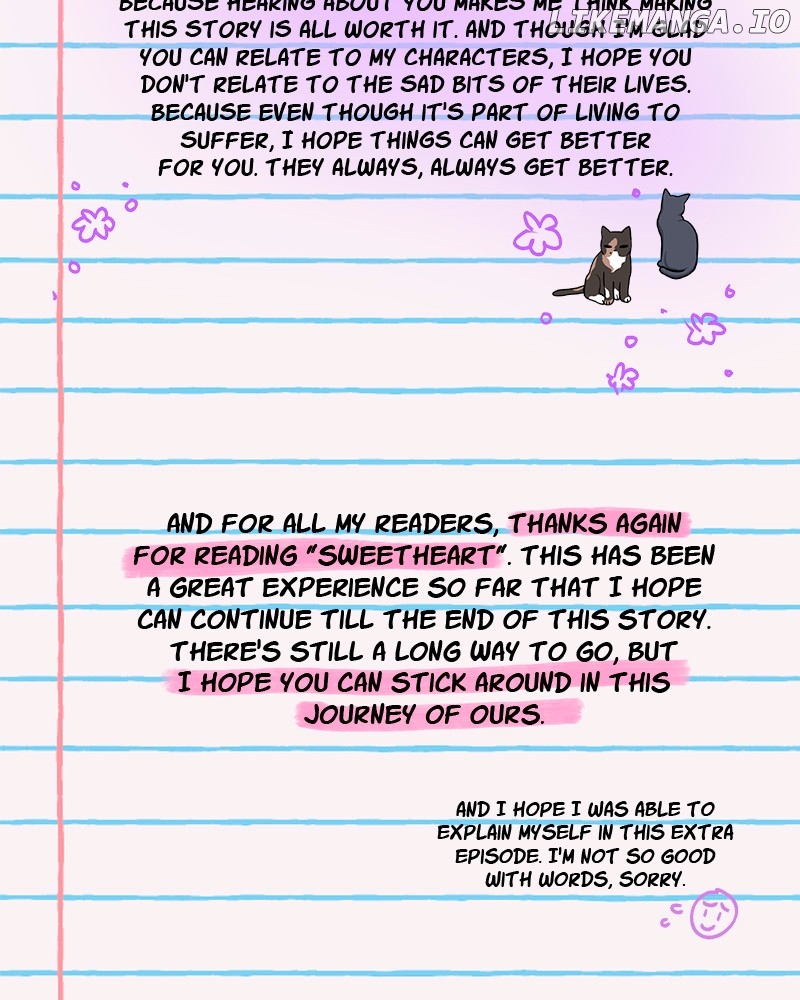 BECAUSE HEARING ABOUT YOU MAKES ME THINK MAKING
LIKEMANGA.IO
THIS STORY IS ALL WORTH IT. AND THOUGH I'M GLAD
YOU CAN RELATE TO MY CHARACTERS, I HOPE YOU
DON'T RELATE TO THE SAD BITS OF THEIR LIVES.
BECAUSE EVEN THOUGH IT'S PART OF LIVING TO
SUFFER, I HOPE THINGS CAN GET BETTER
FOR YOU. THEY ALWAYS, ALWAYS GET BETTER.
AND FOR ALL MY READERS, THANKS AGAIN
FOR READING "SWEETHEART". THIS HAS BEEN
A GREAT EXPERIENCE SO FAR THAT I HOPE
CAN CONTINUE TILL THE END OF THIS STORY.
THERE'S STILL A LONG WAY TO GO, BUT
I HOPE YOU CAN STICK AROUND IN THIS
JOURNEY OF OURS.
AND I HOPE I WAS ABLE TO
EXPLAIN MYSELF IN THIS EXTRA
EPISODE. I'M NOT SO GOOD
WITH WORDS, SORRY.